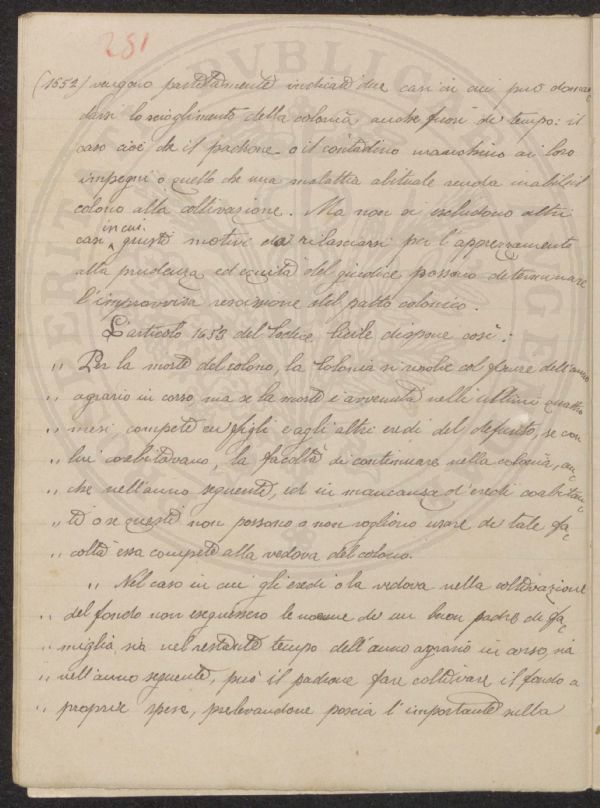 281
(1652) vengono partitamente indicati due casi in cui può doman=
darsi lo scioglimento della colonia anche fuori di tempo: il
caso cioè che il padrone o il contadino manchino ai loro
impegni o quello che una malattia abituale renda inabile il
colono alla coltivazione. Ma non si escludono altri
casi in cui giusti motivi da rilasciarsi per l'apprezzamento
alla prudenza ed equità del giudice possono determinare
l'improvvisa rescissione del patto colonico.
L'articolo 1653 del Codice Civile dispone così:
" Per la morte del colono, la Colonia si risolve col finire dell'anno
" agrario in corso, ma se la morte è avvenuta nelli ultimi quattro
" mesi compete ai figli e agli altri eredi del defunto, se con
" lui coabitavano, la facoltà di continuare nella colonia, an=
" che nell'anno seguente, ed in mancanza d'eredi coabitan=
" ti o se questi non possono o non vogliono usare di tale fa=
" coltà essa compete alla vedova del colono.
" Nel caso in cui gli eredi o la vedova nella coltivazione
" del fondo non eseguissero le norme di un buon padre di fa=
" miglia, sia nel restante tempo dell'anno agrario in corso, sia
" nell'anno seguente, può il padrone fare coltivare il fondo a
" proprie spese, prelevandone poscia l'importante sulla